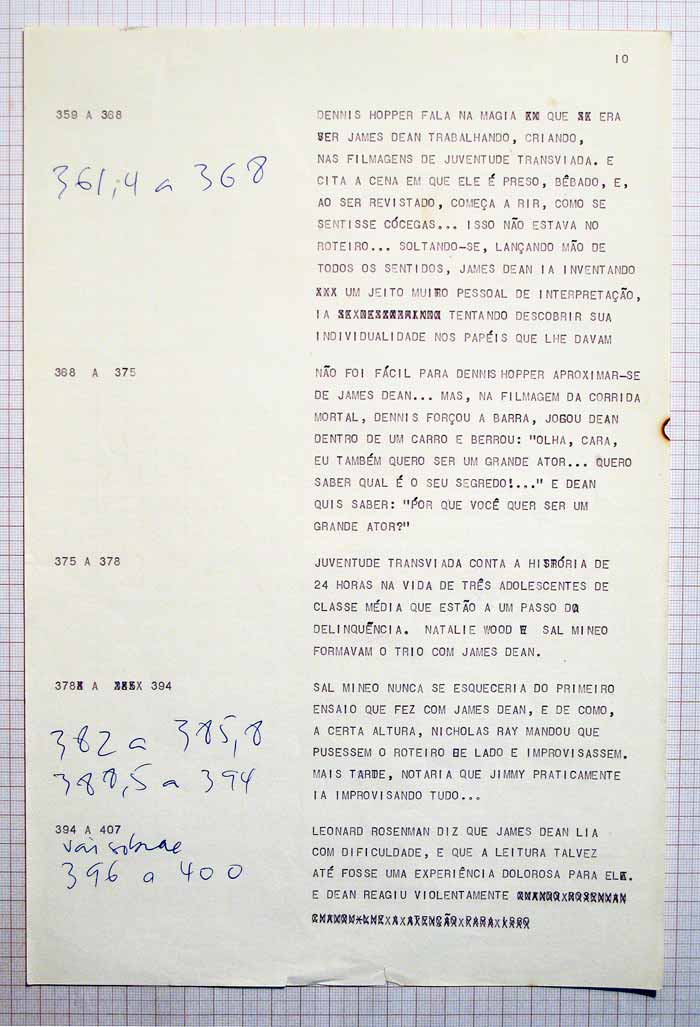 10
359 A 368
361,4 a 368
DENNIS HOPPER FALA NA MAGIA QUE ERA
VER JAMES DEAN TRABALHANDO, CRIANDO,
NAS FILMAGENS DE JUVENTUDE TRANSVIADA. E
CITA A CENA EM QUE ELE É PRESO, BÊBADO, E,
AO SER REVISTADO, COMEÇA A RIR, COMO SE
SENTISSE CÓCEGAS... ISSO NÃO ESTAVA NO
ROTEIRO... SOLTANDO-SE, LANÇANDO MÃO DE
TODOS OS SENTIDOS, JAMES DEAN IA INVENTANDO
XXX UM JEITO MUITO PESSOAL DE INTERPRETAÇÃO,
IA TENTANDO DESCOBRIR SUA
INDIVIDUALIDADE NOS PAPÉIS QUE LHE DAVAM
368 A 375
NÃO FOI FÁCIL PARA DENNIS HOPPER APROXIMAR-SE
DE JAMES DEAN... MAS, NA FILMAGEM DA CORRIDA
MORTAL, DENNIS FORÇOU A BARRA, JOGOU DEAN
DENTRO DE UM CARRO E BERROU: "OLHA, CARA,
EU TAMBÉM QUERO SER UM GRANDE ATOR... QUERO
SABER QUAL É O SEU SEGREDO!..." E DEAN
QUIS SABER: "POR QUE VOCÊ QUER SER UM
GRANDE ATOR?"
375 A 378
JUVENTUDE TRANSVIADA CONTA A HISTÓRIA DE
24 HORAS NA VIDA DE TRÊS ADOLESCENTES DE
CLASSE MÉDIA QUE ESTÃO A UM PASSO DA
DELINQUÊNCIA. NATALIE WOOD E SAL MINEO
FORMAVAM O TRIO COM JAMES DEAN.
378 A 394
382 a 385,8
388,5 a 394
SAL MINEO NUNCA SE ESQUECERIA DO PRIMEIRO
ENSAIO QUE FEZ COM JAMES DEAN, E DE COMO,
A CERTA ALTURA, NICHOLAS RAY MANDOU QUE
PUSESSEM O ROTEIRO DE LADO E IMPROVISASSEM.
MAIS TARDE, NOTARIA QUE JIMMY PRATICAMENTE
IA IMPROVISANDO TUDO...
394 A 407
vai sobrae
396 a 400
LEONARD ROSENMAN DIZ QUE JAMES DEAN LIA
COM DIFICULDADE, E QUE A LEITURA TALVEZ
ATÉ FOSSE UMA EXPERIÊNCIA DOLOROSA PARA ELE.
E DEAN REAGIU VIOLENTAMENTE QUANDO ROSENMAN
CHAMOU-LHE A ATENÇÃO PARA ISSO